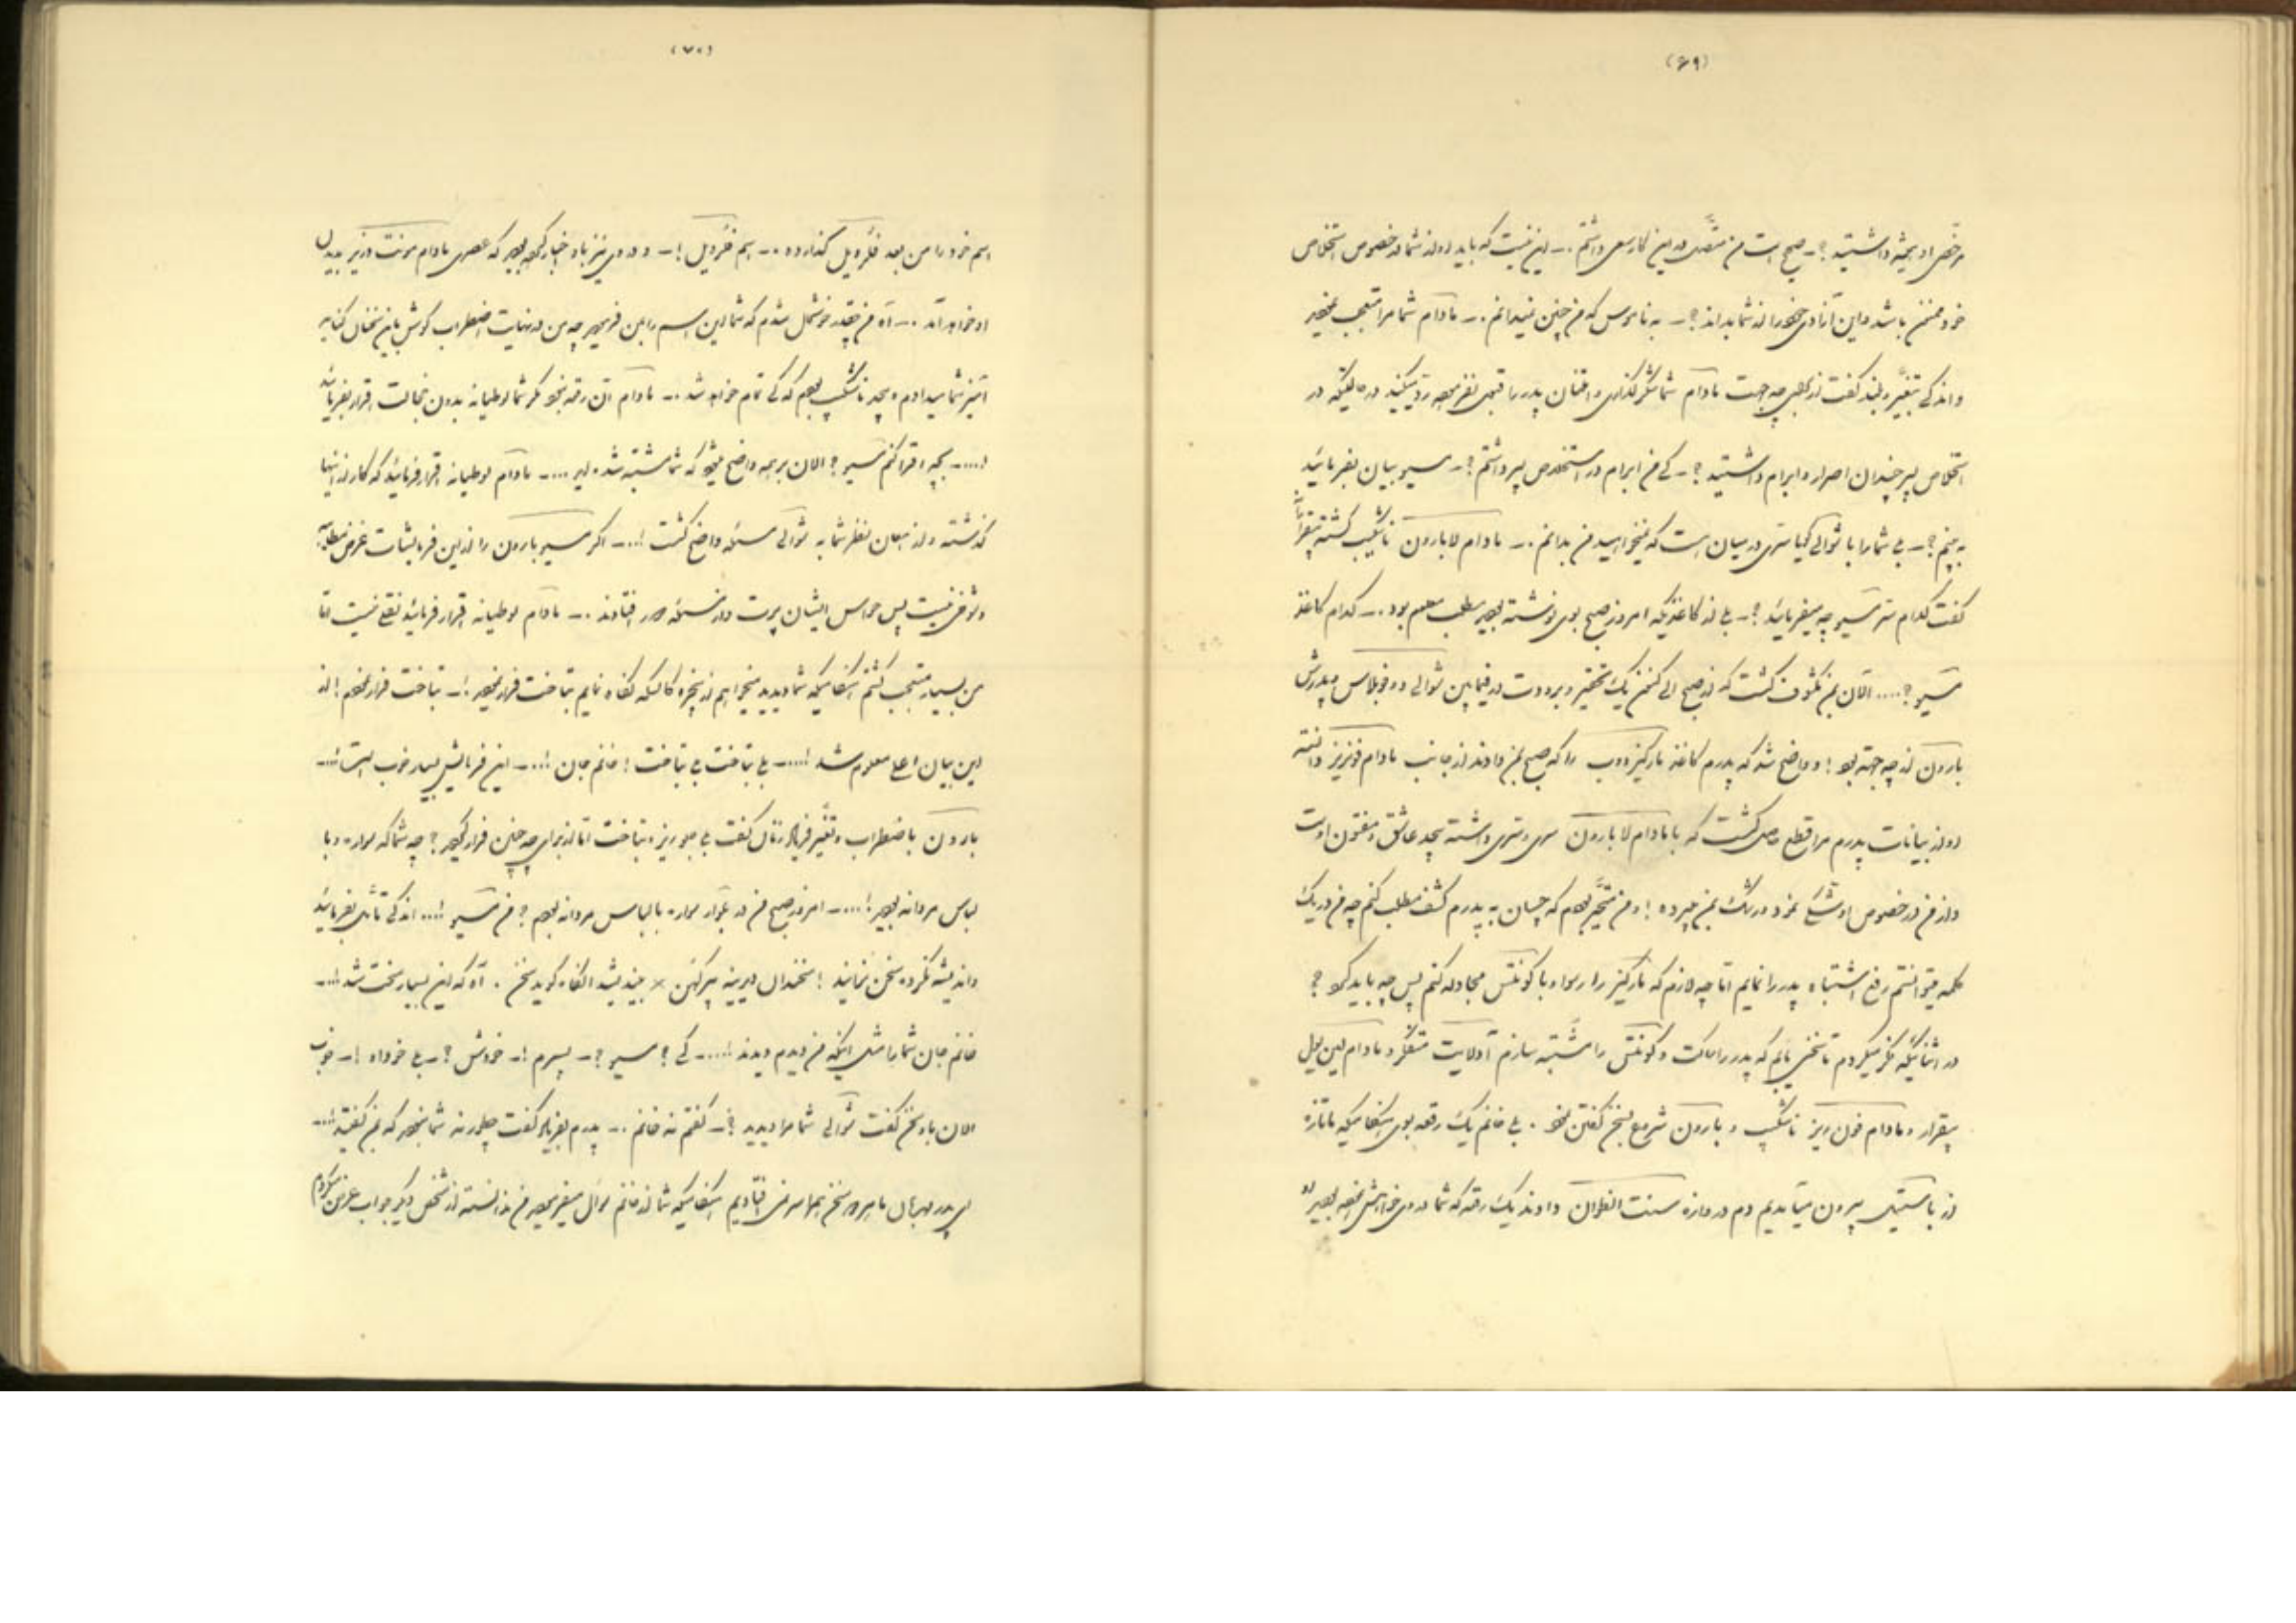 (۶۹)
مرخصی او بمیثه داشتید ؟ ـ صحیح است من متصل در این کار سعی داشتم ـ این نیست که باید او از شما در خصوص استخلاص
خود ممنون باشد و این آزادی خود را از شما بداند ؟ ـ به ناموس که من چنین نمیدانم ـ مادام شما مرا متعجب
و اندکی بتغیر بلند گفت از چه جهت مادام شما شکرگذاری و امتنان پدر را قبول نفرموده رد میکنید در حالتیکه در
استخلاص پسر چندان اصرار و ابرام داشتید ؟ ـ کی من ابرام در استخلاص پسر داشتم ؟ ـ مسیو بیان بفرمائید
به بینم ؟ ـ بی شما را با شوالی گویا سری در میان است که نمیخواهید من بدانم ـ مادام لابارون ناشکیب گشته متغیراً
گفت کدام سر مسیو چه میفرمائید ؟ ـ بی از کاغذیکه امروز صبح بوی نوشته بودید مطلب معلوم بود ـ کدام کاغذ
مسیو ؟ .... الآن بمن مکشوف گشت که از صبح الی کنون یک تحقیر و برودت در فیمابین شوالی دوفوبلاس و پدرش
بارون از چه جهة بود ! و واضح شد که پدرم کاغذ مارکیز دوب را که صبح بمن دادند از جانب مادام فونرز دانسته
و از بیانات پدرم مرا قطع حاصل گشت که با مادام لابارون سری و سری داشته بیحد عاشق و مفتون اوست
و از من در خصوص او رشک بمن میبرده ! و من متحیر بودم که چسان به پدرم کشف مطلب کنم چه من در یک
کلمه میتوانستم رفع اشتباه پدر را نمایم اما چه لازم که مارکیز را رسوا و با کونتس مجادله کنم پس چه باید کرد ؟
در اثنائیکه فکر میکردم تا سخنی یابم که پدر را ساکت و کونتس را مشتبه سازم آدلایت متفکر و مادام لینیول
بیقرار و مادام فون رز ناشکیب و بارون شروع بسخن گفتن نمود . بی خانم یک رقعه بوی هنگامیکه ما تازه
از باستیل بیرون میآمدیم دم دروازه سنت انطوان دادند یک رقعه که شما در وی خواهش نموده بودید او
(۷۰)
اسم خود را من بعد فلرویل گذارده ـ اسم فلرویل ! ـ و در وی نیز باو اخبار کرده بودید که عصری مادام مونت دزیر بدیدن
او خواهد آمد ـ آه من چقدر خوشحال شدم که شما این اسم را بمن فرمودید چه من در نهایت اضطراب گوش باین سخنان کنایه
آمیز شما میدادم و بیحد ناشکیب بودم که کی تمام خواهد شد ـ مادام آن رقعه بخود مگر شما لوطیانه بدون خجالت اقرار بفرمائید
.... بچه اقرار کنم مسیو ؟ الان بر همه واضح میشود که شما مشتبه شده اید .... ـ مادام لوطیانه اقرار فرمائید که کار از اینها
گذشته و از همان نظر شما به شوالی مسئله واضح گشت ! ... ـ اگر مسیو بارون را از این فرمایشات غرض مطلبی
و شوخی نیست پس حواس ایشان پرت و از مسئله دور افتادند ـ مادام لوطیانه اقرار فرمائید نقلی نیست اما
من بسیار متعجب گشتم هنگامیکه شما دیدید میخواهم از پنجره کالسکه نگاه نمایم بتاخت فرار نمودید ! ـ بتاخت فرار نمودم ! از
این بیان اعلی معلوم شد ! .... ـ بی بتاخت بی بتاخت ! خانم جان ! ... ـ این فرمایش بسیار خوب است ! ... ـ
بارون باضطراب و تغیر فریاد زنان گفت بی جلوریز و بتاخت اما از برای چه چنین فرار کردید ؟ چه شما که سواره و با
لباس مردانه بودید ! .... ـ امروز صبح من در بلوار سواره با لباس مردانه بودم ؟ من مسیو ! ... اندکی تأمل بفرمائید
و اندیشه نکرده سخن نرانید ! سخندان دیرینه پیر کهن × بیندیشد آنگاه گوید سخن . آه که این بسیار سخت شد ! ... ـ
خانم جان شما را مثل اینکه من دیدم دیدند ! .... ـ کی ؟ مسیو ؟ ـ پسرم ! ـ خودش ؟ ـ بی خود او ! ـ خوب
الان باو سخن گفت شوالی شما مرا دیدید ؟ ـ گفتم نه خانم ـ پدرم بفریاد گفت چطور نه شما نبودید که بمن گفتید ! ... ـ
ای پدر مهربان ما بر سر سخن افتادیم هنگامیکه شما از خانم سؤال میفرمودید من ندانسته از شخص دیگر جواب عرض میکردم